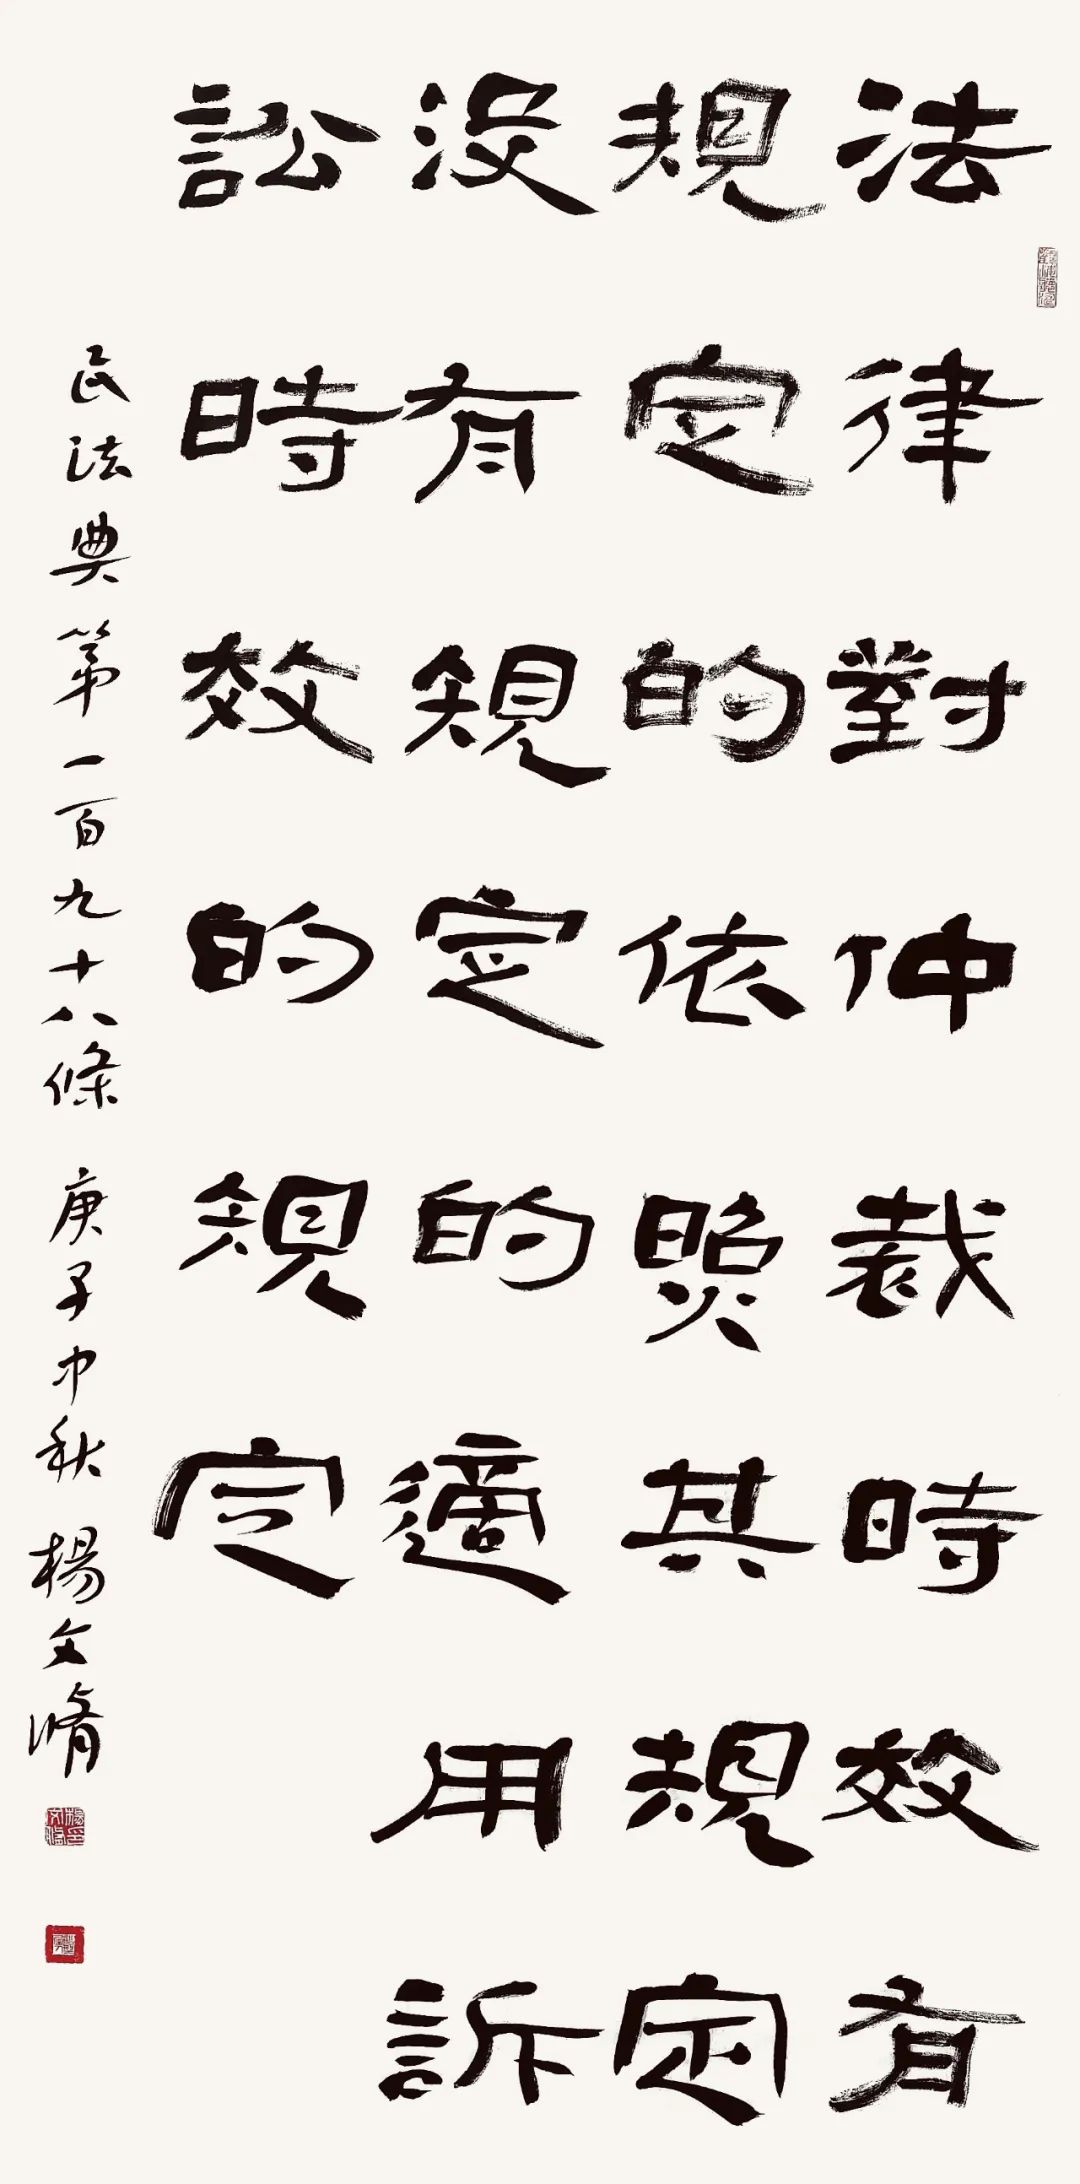 法律對仲裁時效有
規定的依照其規定
没有規定的適用訴
訟時效的規定
民法典第一百九十八條 庚子中秋 楊文脩